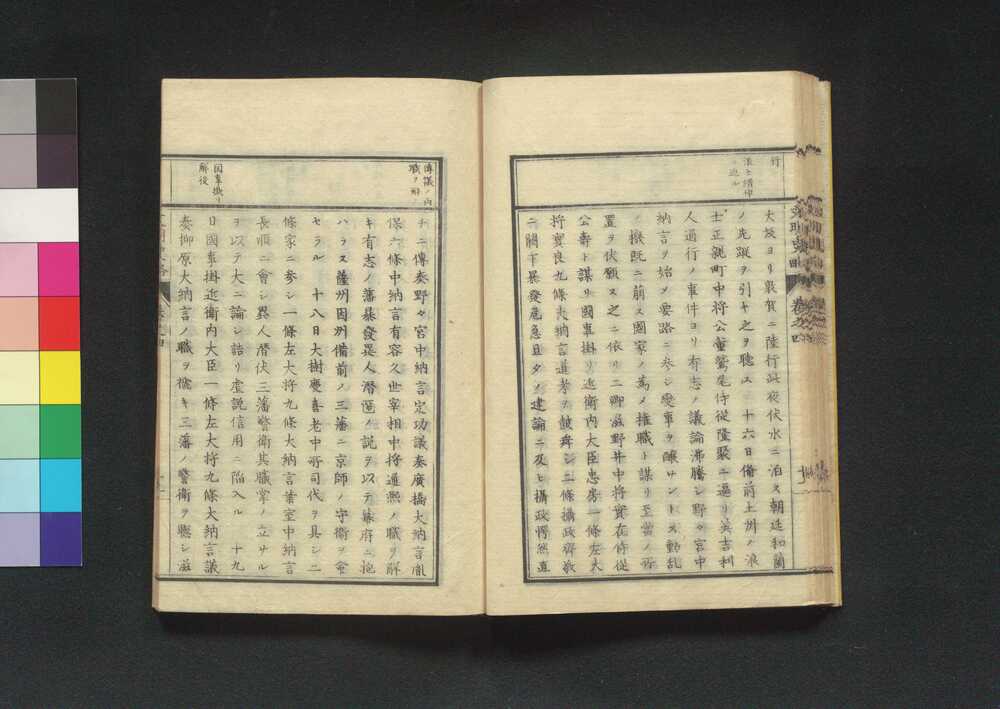 行
浪士搢紳
ニ迫ル
大坂ヨリ敦賀ニ陸行此夜伏水ニ泊ス朝廷和蘭
ノ先蹤ヲ引キ之ヲ聴ス 十六日備前土州ノ浪
士正親町中将公董鷲尾侍従隆聚ニ逼リ英吉利
人通行ノ事件ヨリ有志ノ議論沸騰シ野々宮中
納言ヲ始メ要路ニ参シ変事ヲ醸サントス動乱
ノ機既ニ萠ス國家ノ為メ權職ト謀リ至當ノ所
置ヲ伏願ス之ニ依リ二卿滋野井中将實在侍従
公壽ト謀リ國事掛リ近衛内大臣忠房一條左大
将實良九條大納言道孝ヲ鼓舞シ二條攝政齊敬
ニ關下暴發危急旦夕ノ建論ニ及ヒ攝政愕然直
傳議ノ内
職ヲ解ク
因事掛リ
解後
チニ傳奏野々宮中納言定功議奏廣橋大納言胤
保六條中納言有容久世宰相中将通熈ノ職ヲ解
キ有志ノ藩暴發異人潜匿ノ説ヲ以テ幕府ニ抱
ハラス薩州因州備前ノ三藩ニ京師ノ守衛ヲ命
セラル 十八日大樹慶喜老中所司代ヲ具シ二
條家ニ参シ一條左大将九條大納言葉室中納言
長順ニ會シ異人潜伏三藩警衛其職掌ノ立サル
ヲ以テ大ニ論シ詰リ虚説信用ニ陥入ル 十九
日國事掛近衛内大臣一條左大将九條大納言議
奏柳原大納言ノ職ヲ褫キ三藩ノ警衛ヲ懸シ滋